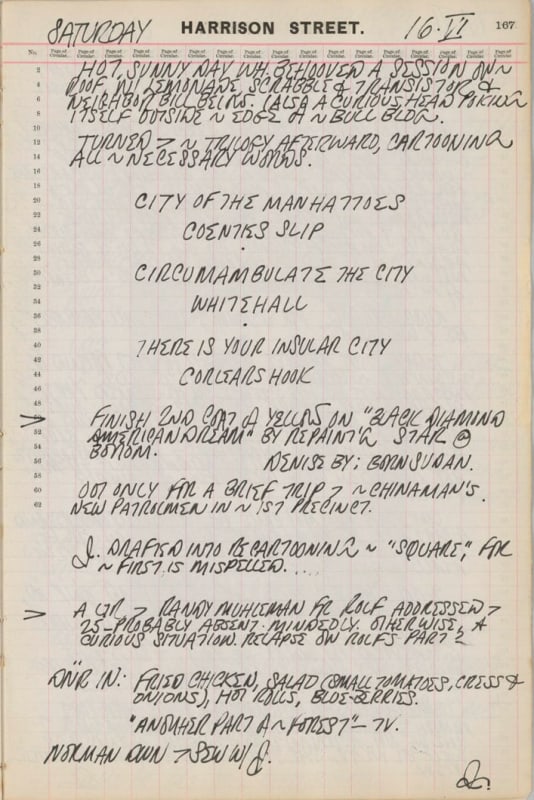 SATURDAY HARRISON STREET. 16·VI 167
No. Page of Circular. Page of Circular. Page of Circular. Page of Circular. Page of Circular. Page of Circular. Page of Circular. Page of Circular. Page of Circular. Page of Circular.
2 HOT, SUNNY DAY WH. BEHOOVED A SESSION ON ~
4 ROOF W/ LEMONADE, SCRABBLE & TRANSISTOR &
6 NEIGHBOR BILL BELOW. (ALSO A CURIOUS HEAD POKING
8 ITSELF OUTSIDE ~ EDGE OF ~ BULL BLDG.
10
12 TURNED > ~ TRILOGY AFTERWARD, CARTOONING
14 ALL ~ NECESSARY WORDS.
16
18
20 CITY OF THE MANHATTOES
22
24 COENTIES SLIP
26 ·
28
30 CIRCUMAMBULATE THE CITY
32
34 WHITEHALL
36 ·
38
40 THERE IS YOUR INSULAR CITY
42
44 CORLEARS HOOK
46
48
> FINISH 2ND COAT OF YELLOW ON "BLACK DIAMOND
52 AMERICAN DREAM" BY REPAINT'G STAR @
54 BOTTOM.
56 DENISE BY; BORN SUDAN.
58
60 OUT ONLY FOR A BRIEF TRIP > ~ CHINAMAN'S.
62 NEW PATROLMEN IN ~ 1ST PRECINCT.
J. DRAFTED INTO RECARTOONING ~ "SQUARE", FOR
~ FIRST IS MISPELLED....
> A LTR > RANDY MUHLEMAN FR ROLF ADDRESSED >
25 – PROBABLY ABSENT-MINDEDLY. OTHERWISE, A
CURIOUS SITUATION. RELAPSE ON ROLF'S PART?
DNR IN: FRIED CHICKEN, SALAD (SMALL TOMATOES, CRESS &
ONIONS), HOT ROLLS, BLUE-BERRIES.
"ANOTHER PART OF ~ FOREST" – TV.
NORMAN DWN > SEW W/ J.